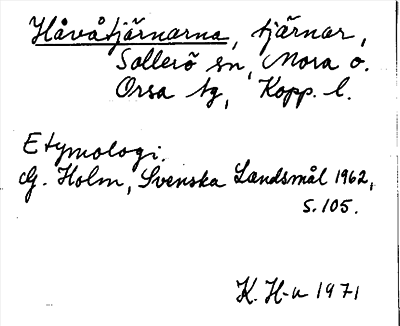 Håvåtjärnarna, tjärnar,
Sollerö sn, Mora o.
Orsa tg, Kopp. l.
Etymologi.
G. Holm, Svenska Landsmål 1962,
s. 105.
K. H-n 1971